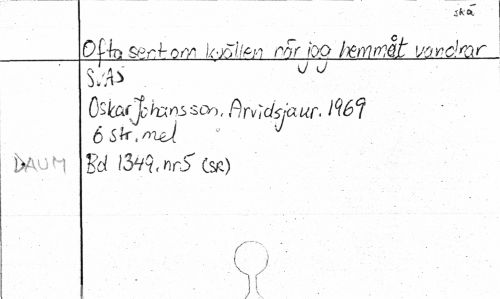 skä
Ofta sent om kvällen när jag hemmåt vandrar
SVAS
Oskar Johansson. Arvidsjaur. 1969
6 str. mel
DAUM Bd 1349. nr 5 (SR)